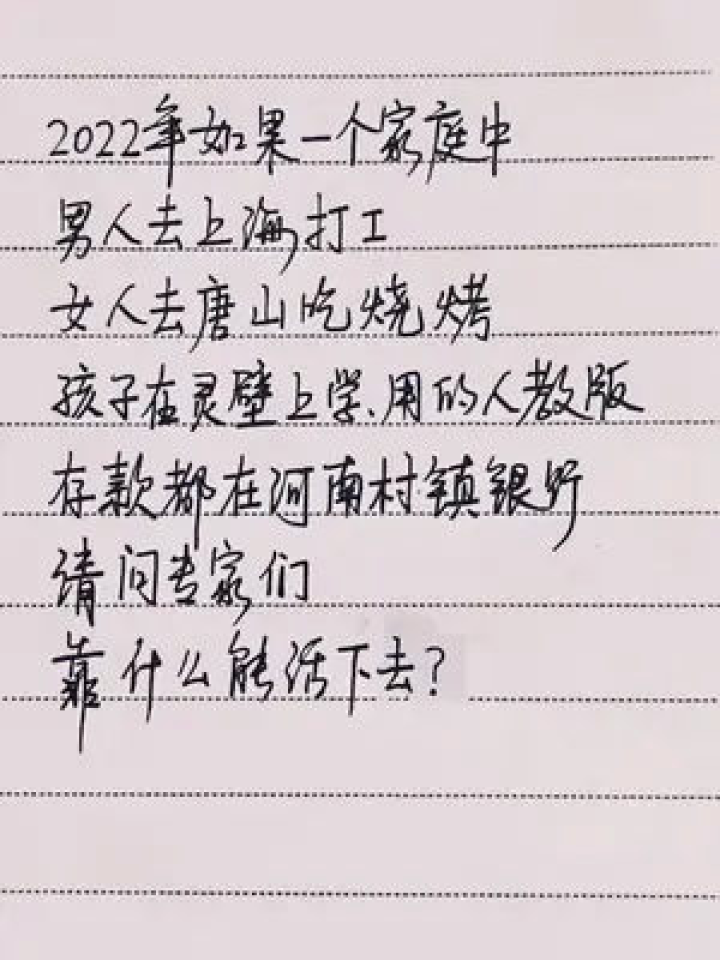 2022年如果一个家庭中
男人去上海打工
女人去唐山吃烧烤
孩子在灵壁上学、用的人教版
存款都在河南村镇银行
请问专家们
靠什么能活下去?